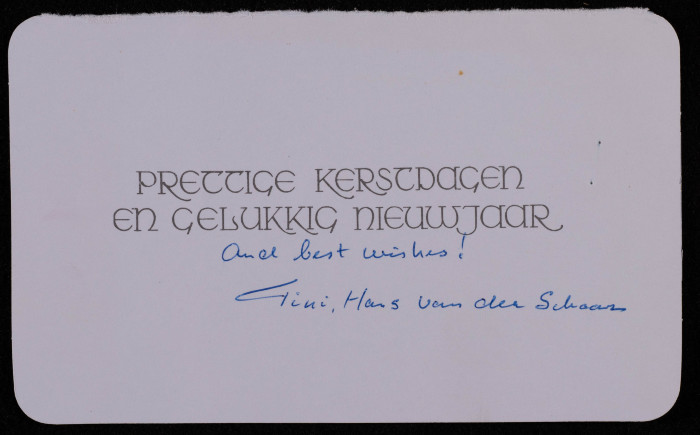 PRETTIGE KERSTDAGEN
EN GELUKKIG NIEUWJAAR
And best wishes!
Tini, Hans van der Schaar